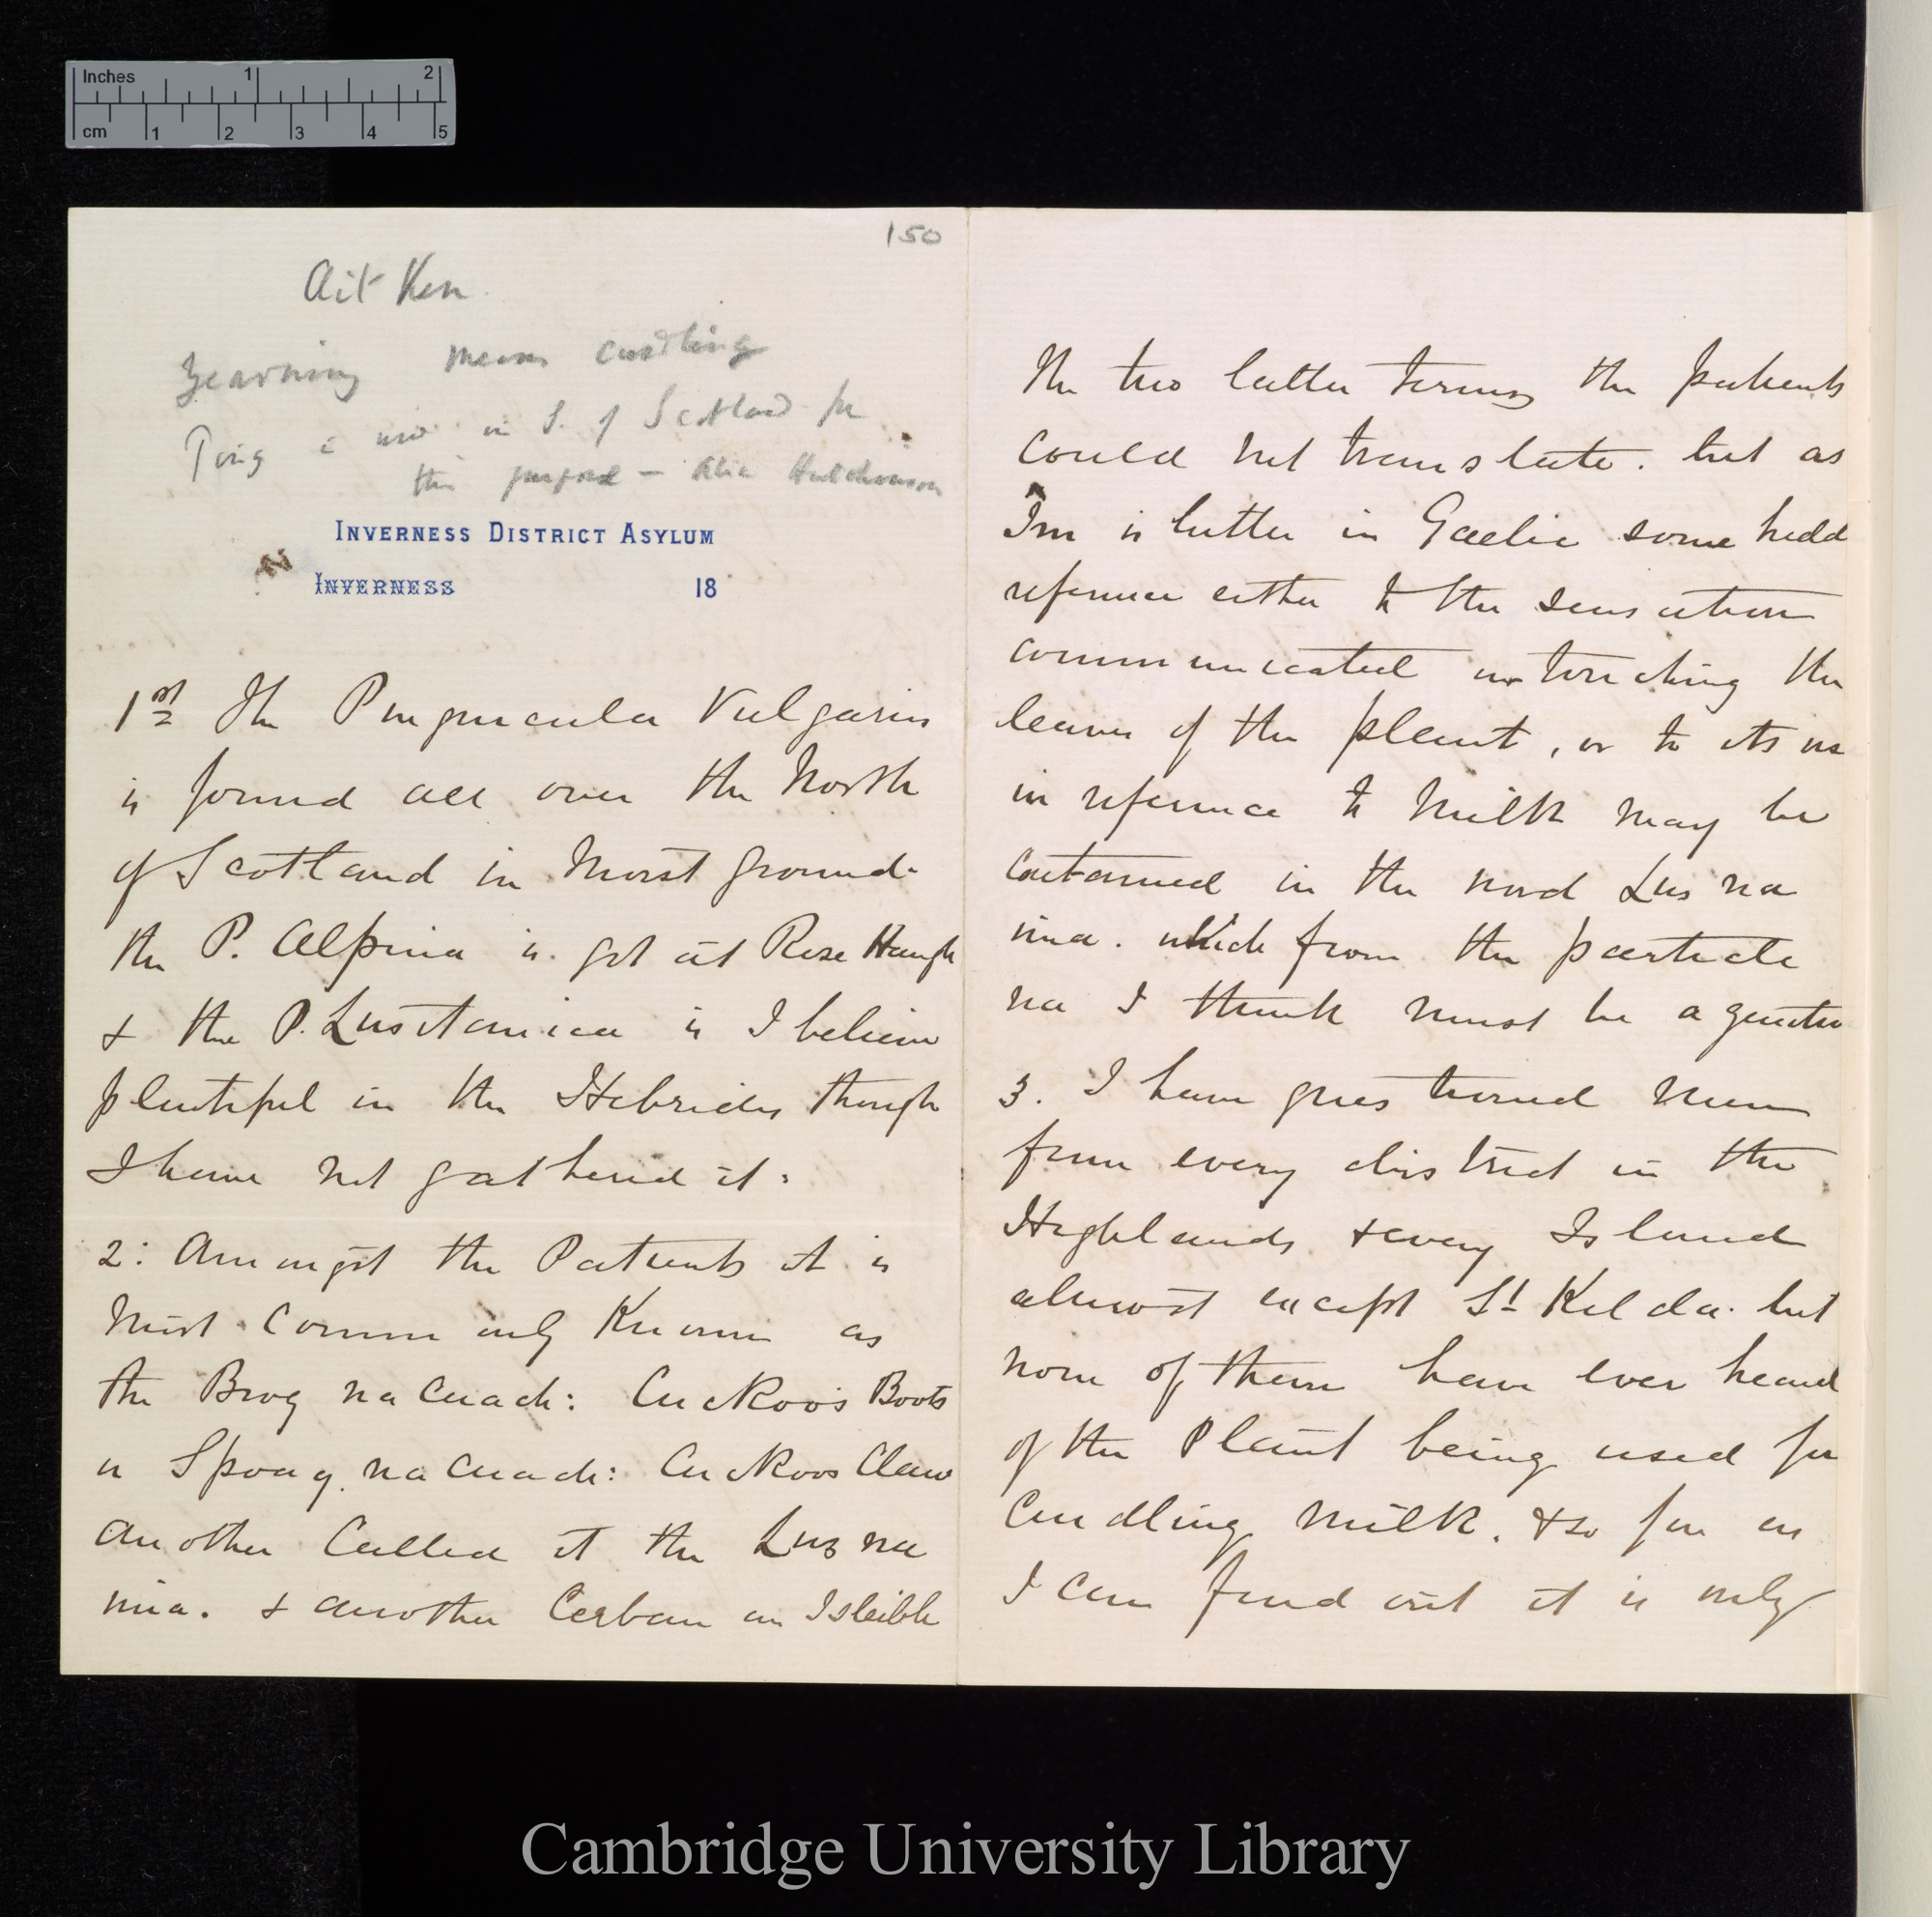 Inches 1 2
cm 1 2 3 4 5
150
Aitken
Yearning means curdling
Ping is used in S. of Scotland for
this purpose — Alice Hutchinson
INVERNESS DISTRICT ASYLUM
INVERNESS 18
1st The Pinguicula Vulgaris
is found all over the North
of Scotland in Moist ground.
the P. Alpina is got at Rose Haugh
& the P. Lusitanica is I believe
plentiful in the Hebrides though
I have not gathered it:
2: Amongst the Patients it is
Most Commonly Known as
the Brog na Cuach: Cuckoo's Boots
or Spoag na Cuach: Cuckoos Claw
another Called it the Lus na
ima. & another Cerban an Isleibh
The two latter terms the patients
could not translate. but as
Im is butter in Gaelic some hidd
reference either to the sensation
communicated on touching the
leaves of the plant, or to its use
in reference to Milk may be
Contained in the word Lus na
ima. which from the particle
na I think must be a genitive
3. I have questioned Men
from every district in the
Highlands & every Island
almost except St Kilda. but
none of them have ever heard
of the Plant being used for
Curdling Milk. & so far as
I can find out it is only
Cambridge University Library